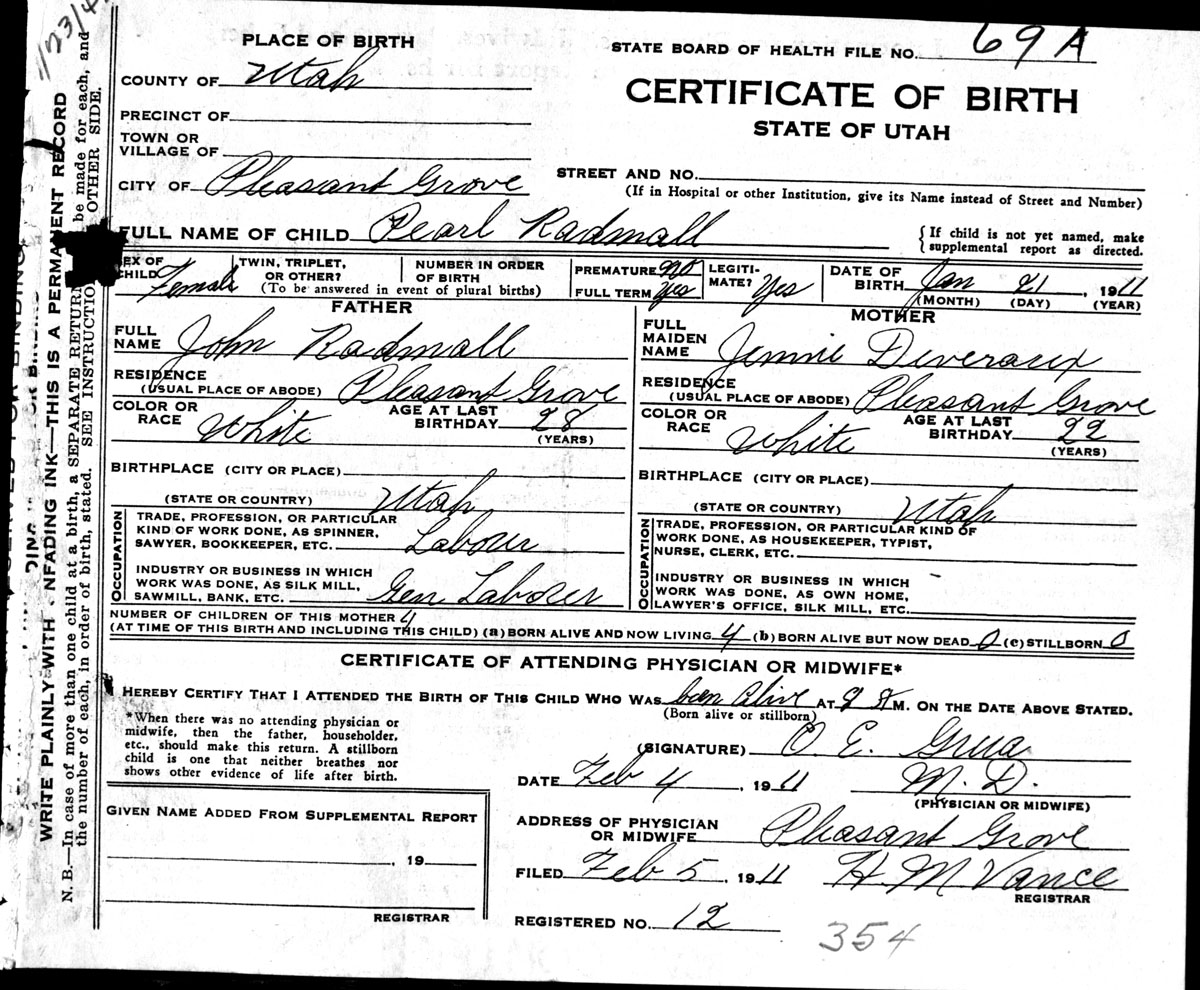 PLACE OF BIRTH
STATE BOARD OF HEALTH FILE NO. 69A
COUNTY OF Utah
CERTIFICATE OF BIRTH
PRECINCT OF
STATE OF UTAH
TOWN OR
VILLAGE OF
STREET AND NO.
CITY OF Pleasant Grove
(If in Hospital or other Institution, give its Name instead of Street and Number)
FULL NAME OF CHILD Pearl Radmall
{ If child is not yet named, make
supplemental report as directed.
SEX OF
CHILD Female
TWIN, TRIPLET,
OR OTHER?
NUMBER IN ORDER
OF BIRTH
(To be answered in event of plural births)
PREMATURE No
FULL TERM Yes
LEGITI-
MATE? Yes
DATE OF
BIRTH Jan 21, 1911
(MONTH) (DAY) (YEAR)
FATHER
FULL
NAME John Radmall
RESIDENCE
(USUAL PLACE OF ABODE) Pleasant Grove
COLOR OR
RACE White
AGE AT LAST
BIRTHDAY 28
(YEARS)
BIRTHPLACE (CITY OR PLACE)
(STATE OR COUNTRY) Utah
OCCUPATION
TRADE, PROFESSION, OR PARTICULAR
KIND OF WORK DONE, AS SPINNER,
SAWYER, BOOKKEEPER, ETC. Laborer
INDUSTRY OR BUSINESS IN WHICH
WORK WAS DONE, AS SILK MILL,
SAWMILL, BANK, ETC. Gen Laborer
MOTHER
FULL
MAIDEN
NAME Jennie Deveraux
RESIDENCE
(USUAL PLACE OF ABODE) Pleasant Grove
COLOR OR
RACE White
AGE AT LAST
BIRTHDAY 22
(YEARS)
BIRTHPLACE (CITY OR PLACE)
(STATE OR COUNTRY) Utah
OCCUPATION
TRADE, PROFESSION, OR PARTICULAR KIND OF
WORK DONE, AS HOUSEKEEPER, TYPIST,
NURSE, CLERK, ETC.
INDUSTRY OR BUSINESS IN WHICH
WORK WAS DONE, AS OWN HOME,
LAWYER'S OFFICE, SILK MILL, ETC.
NUMBER OF CHILDREN OF THIS MOTHER 4
(AT TIME OF THIS BIRTH AND INCLUDING THIS CHILD) (a) BORN ALIVE AND NOW LIVING 4 (b) BORN ALIVE BUT NOW DEAD 0 (c) STILLBORN 0
CERTIFICATE OF ATTENDING PHYSICIAN OR MIDWIFE*
I HEREBY CERTIFY THAT I ATTENDED THE BIRTH OF THIS CHILD WHO WAS born alive AT M. ON THE DATE ABOVE STATED.
(Born alive or stillborn)
*When there was no attending physician or
midwife, then the father, householder,
etc., should make this return. A stillborn
child is one that neither breathes nor
shows other evidence of life after birth.
(SIGNATURE) O. E. Grua
DATE Feb 4, 1911 M. D.
(PHYSICIAN OR MIDWIFE)
GIVEN NAME ADDED FROM SUPPLEMENTAL REPORT
, 19
REGISTRAR
ADDRESS OF PHYSICIAN
OR MIDWIFE Pleasant Grove
FILED Feb 5, 1911 H. M Vance
REGISTRAR
REGISTERED NO. 12
354
WRITE PLAINLY WITH UNFADING INK—THIS IS A PERMANENT RECORD
N. B.—In case of more than one child at a birth, a SEPARATE RETURN be made for each, and
the number of each, in order of birth, stated. SEE INSTRUCTION OTHER SIDE.